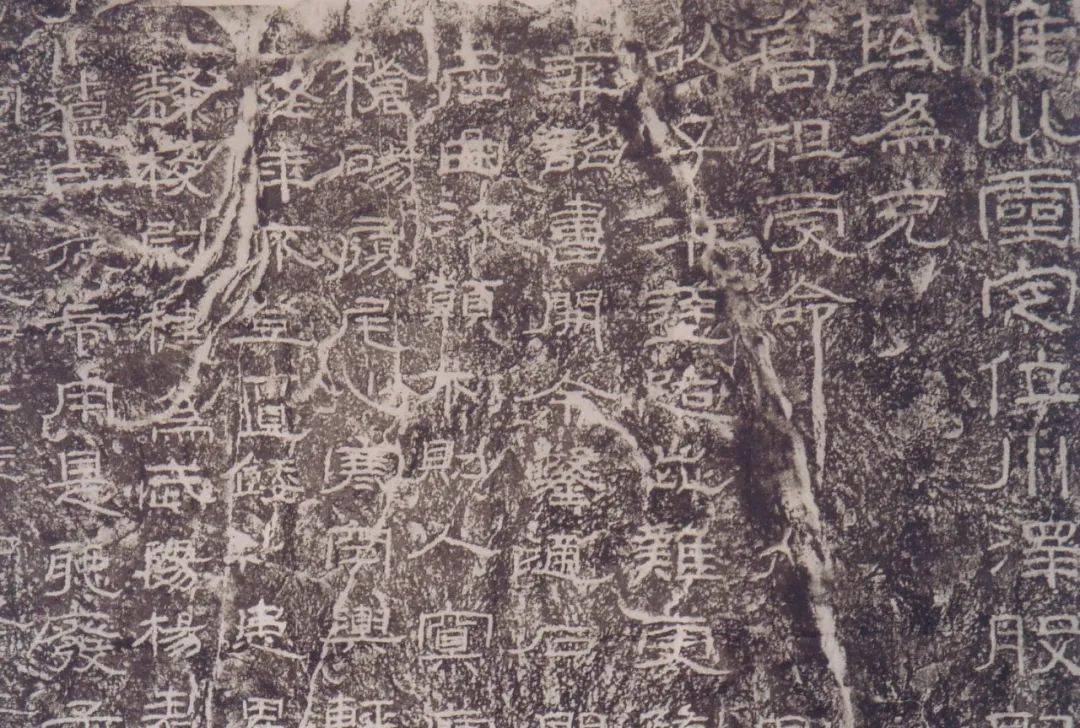 惟坤靈定位川澤股
域為充
高祖受命
以子午途路歰難更隨
年詔書開余鑿通石門
屈曲流顛下則入冥廎
槍碭履尾心寒空輿輕
終年不登匱餧之患卑
隸校尉楗為武陽楊君
帝用是聽廢子